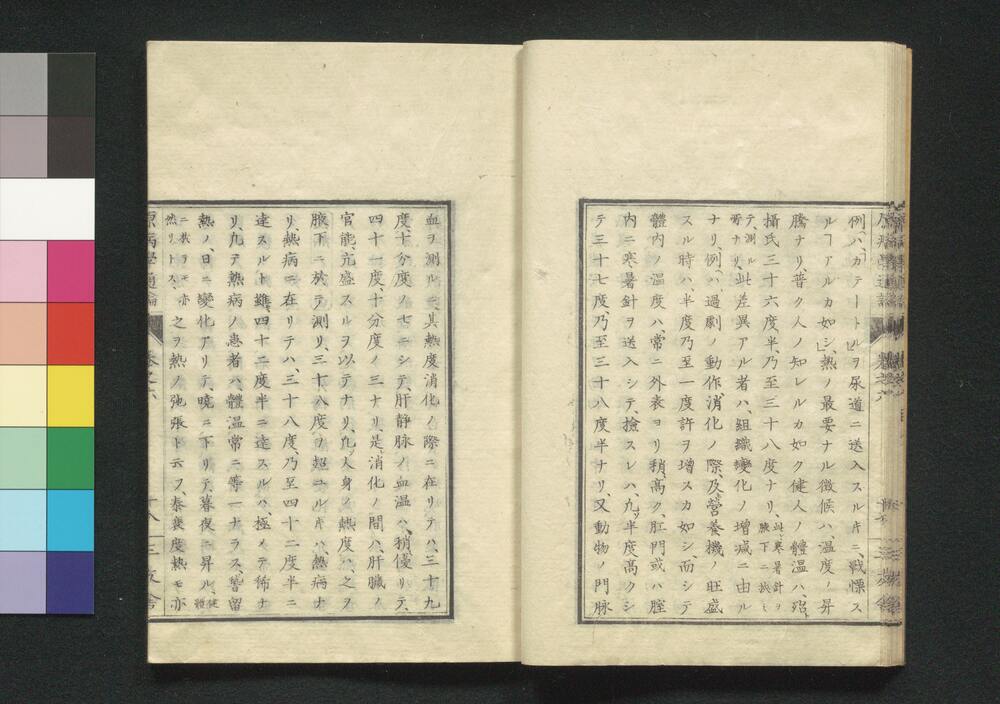 例ハ、「カテートル」ヲ尿道ニ送入スルキニ、戰慄ス
ルヿアルカ如シ、熱ノ最要ナル徴候ハ温度ノ昇
騰ナリ、普ク人ノ知レルカ如ク健人ノ體温ハ、
攝氏三十六度半、乃至三十八度ナリ、此寒暑計ヲ腋下ニ挾ミ
テ、測ル所ナリ、此差異アル者ハ、組織變化ノ増減ニ由ル
ナリ、例ハ過劇ノ動作消化ノ際、及營養機ノ旺盛
スル時ハ、半度乃至一度許ヲ増スカ如シ、而シテ
體内ノ温度ハ、常ニ外表ヨリ稍高ク、肛門或ハ腟
内ニ寒暑針ヲ送入シテ、撿スレハ、凡ソ半度高クシ
テ三十七度、乃至三十八度半ナリ、又動物ノ門脉
血ヲ測ルニ、其熱度消化ノ際ニ在リテハ、三十九
度、十分度ノ七ニシテ、肝静脉ノ血温ハ、稍優リテ、
四十一度、十分度ノ三ナリ、是消化ノ間ハ、肝臓ノ
官能、亢盛スルヲ以テナリ、凡人身ノ熱度ハ、之ヲ
腋下ニ於テ測リ、三十八度ヲ超ユルキハ、熱病ナ
リ、熱病ニ在リテハ、三十八度、乃至四十二度半ニ
達スルト雖、四十二度半ニ達スルハ、極メテ稀ナ
リ、凡テ熱病ノ患者ハ、體温常ニ等一ナラス、暫留
熱ノ、日ニ變化アリテ、曉ニ下リテ、暮夜ニ昇ル、健體
ニ於ヲモ亦然リトス、之ヲ熱ノ弛張ト云フ、泰襄度熱モ亦
原病學通論
卷之六
十八
三友舎